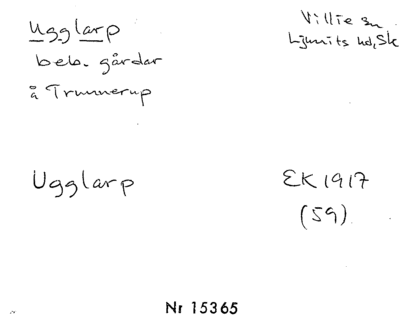 Ugglarp
beb. gårdar
å Trunnerup
Villie sn
Ljunits hd, Sk
Ugglarp
EK 1917
(59)
Nr 15365